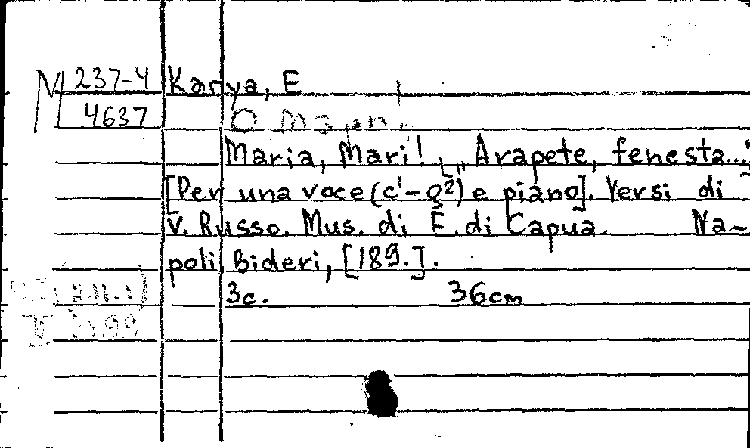 M 237-4 Капуа, E
4637
Maria, Mari! „Arapete, fenesta..."
[Per una voce (c¹–g²) e piano]. Versi di
V. Russo. Mus. di E. di Capua. Na-
poli, Bideri, [189.].
3c. 36cm